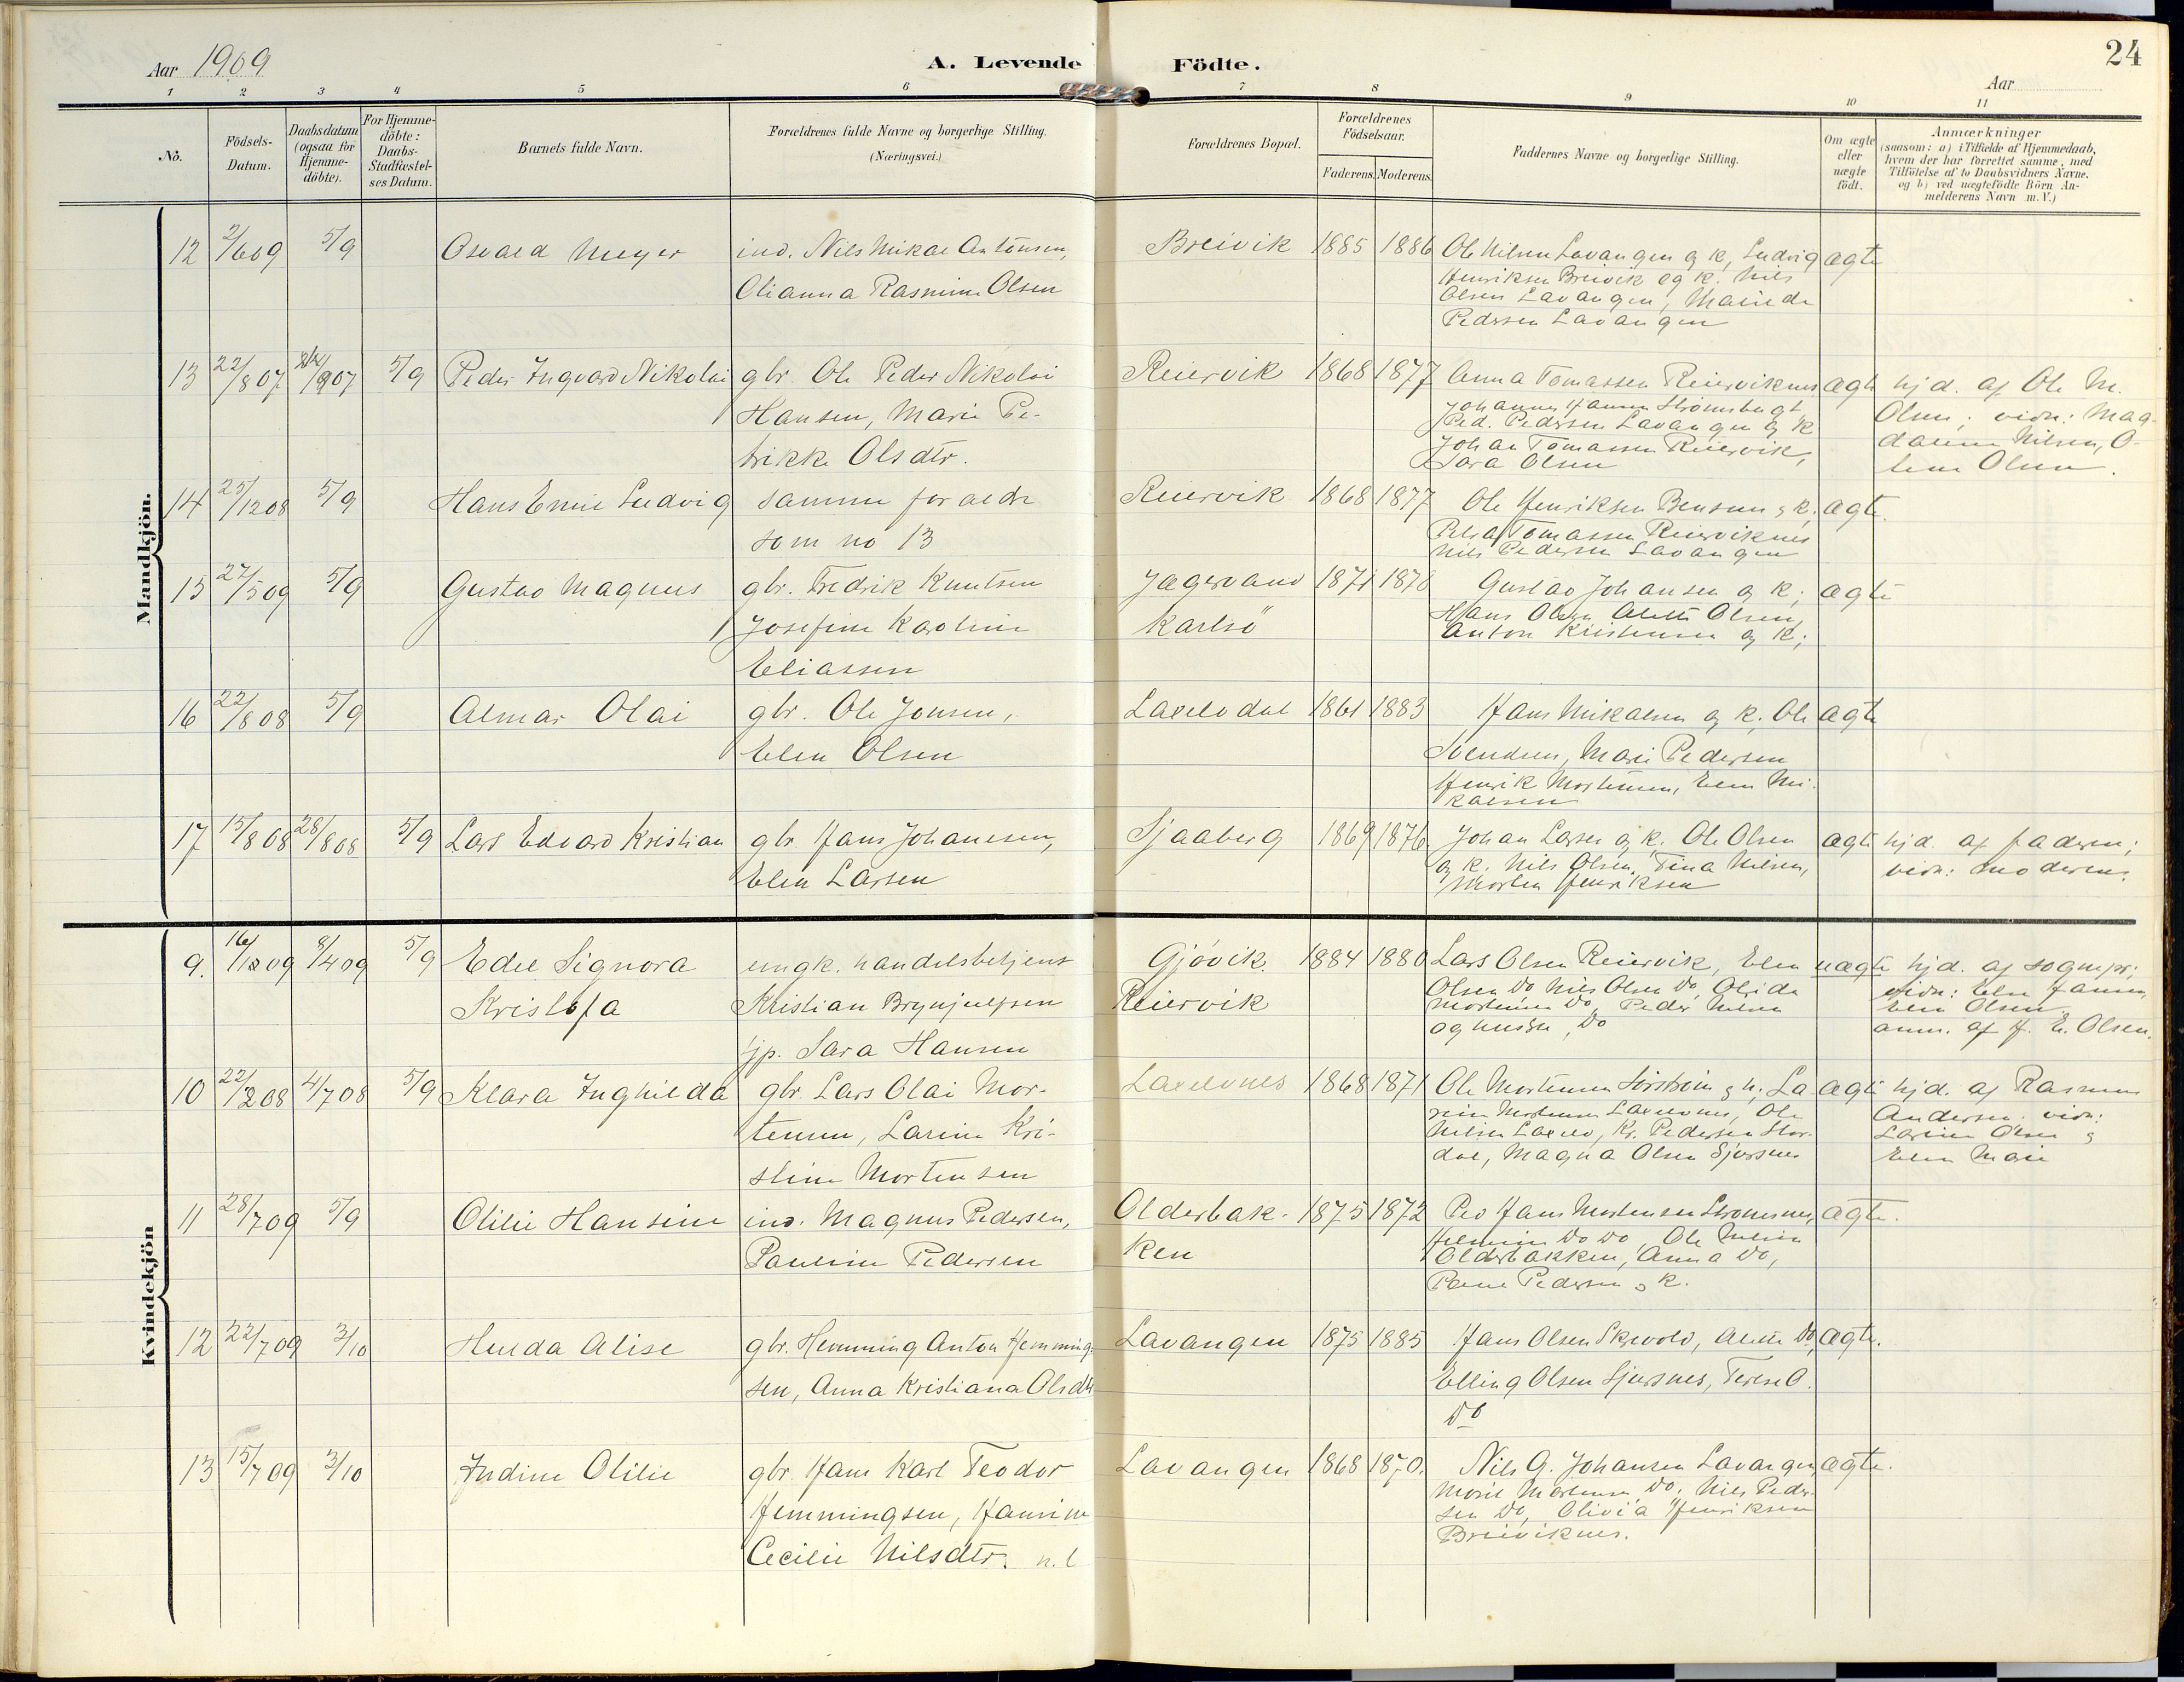 Aar 1909
A. Levende Födte.
24
Aar
1 2 3 4 5 6 7 8 9 10 11
No.
Födsels-Datum.
Daabsdatum (ogsaa for Hjemme-döbte).
For Hjemme-döbte: Daabs-Stadfæstel-ses Datum.
Barnets fulde Navn.
Forældrenes fulde Navne og borgerlige Stilling.
(Næringsvei.)
Forældrenes Bopæl.
Forældrenes Födselsaar.
Faderens. Moderens.
Faddernes Navne og borgerlige Stilling.
Om ægte eller uægte födt.
Anmærkninger
(saasom: a) i Tilfælde af Hjemmedaab,
hvem der har forrettet samme, med
Tilföielse af to Daabsvidners Navne.
og b) ved uægtefödte Börn An-
melderens Navn m. V.)
Mandkjön.
12 2/6 09 5/9 Osvald Meyer ind. Nils Mikal Antonsen, Breivik 1885 1886 Ole Nilsen Lavangen og k, Ludvig ægte
Olianna Rasmine Olsen Henriksen Breivik og k. Nils
Olsen Lavangen,
Pedersen Lavangen
13 22/8 07 5/9 Peder Ingvard Nikolai gbr. Ole Peder Nikolai Reiervik 1868 1877 Anna Tomassen Reierviknes ægte hjd. af Ole M.
Hansen, Marie Pe- Johannes Hansen Strømsbugt Olsen; vidn: Mag-
Ped. Pedersen Lavangen og k
trikke Olsdtr. Johan Tomassen Reiervik, Nilsen, O-
Sara Olsen Olsen.
14 25/12 08 5/9 Hans Emil Ludvig samme foræld. Reiervik 1868 1877 Ole Henriksen Bensnes og k, ægte.
som no 13 Tomassen Reierviknes
Nils Pedersen Lavangen
15 27/5 09 5/9 Gustav Magnus gbr. Fredrik Knutsen Jægervand 1871 1878 Gustav Johansen og k; ægte
Josefine Karoline Karlsö Hans Olsen Olsen,
Anton Kristensen og k;
Eliassen
16 22/8 08 5/9 Almar Olai gbr. Ole Jonsen, Lakselvdal 1861 1883 Hans Mikalsen og k, Ole ægte
Elen Olsen Svendsen, Marie Pedersen
Henrik Mortensen, Elen Mi-
kalsen
17 15/8 08 28/8 08 5/9 Lars Edvard Kristian gbr Hans Johanesen, Sjaaberg 1869 1876. Johan Larsen og k. Ole Olsen ægte hjd. af faderen;
Elen Larsen og k. Nils Olsen, Tina Nilsen, vidn: moderen.
Morten Henriksen
Kvindekjön
9. 8/4 09 5/9 Edel Signora ungk. handelsbetjent Gjövik. 1884 1880 Lars Olsen Reiervik, Elen uægte hjd. af sognepr;
Kristofa Kristian Brynjulfsen Reiervik Olsen Do Nils Olsen Do, vidn: Elen Hansen,
Mortensen Do Peder Nilsen Elen Olsen
jp. Sara Hansen og hustru, Do anm. af H. E. Olsen.
10 4/7 08 5/9 Klara Inghilda gbr. Lars Olai Mor- Lakselvnes 1868 1871 Ole Mortensen og h; La- ægte hjd. af Rasmus
tensen, Larine Kri- Mortensen Lakselvnes, Ole Andersen. vidn:
Nilsen Lakselv, Kr. Pedersen Stor- Olsen og
stine Mortensen dal, Magna Olsen Sjursnes Elen Marie
11 28/7 09 5/9 Otilie Hansine ind. Magnus Pedersen, Olderbak- 1875 1872 Hans Mortensen Strømsnes, ægte.
Pauline Pedersen ken Do Do, Ole Nilsen
Olderbakken, Anna Do,
Pedersen og k.
12 22/7 09 3/10 Hulda Alise gbr. Hemming Anton Hemming- Lavangen 1875 1885 Hans Olsen Skjevold, Do, ægte.
sen, Anna Kristiana Olsdtr Elling Olsen Sjursnes, Terese O.
Do
13 15/7 09 3/10 Indine Otilie gbr. Hans Karl Teodor Lavangen 1868 1870. Nils G. Johansen Lavangen, ægte.
Mortensen Do, Nils Peder-
Hemmingsen, Hansine sen Do, Olivia Henriksen
Cecilie Nilsdtr. Breiviknes.